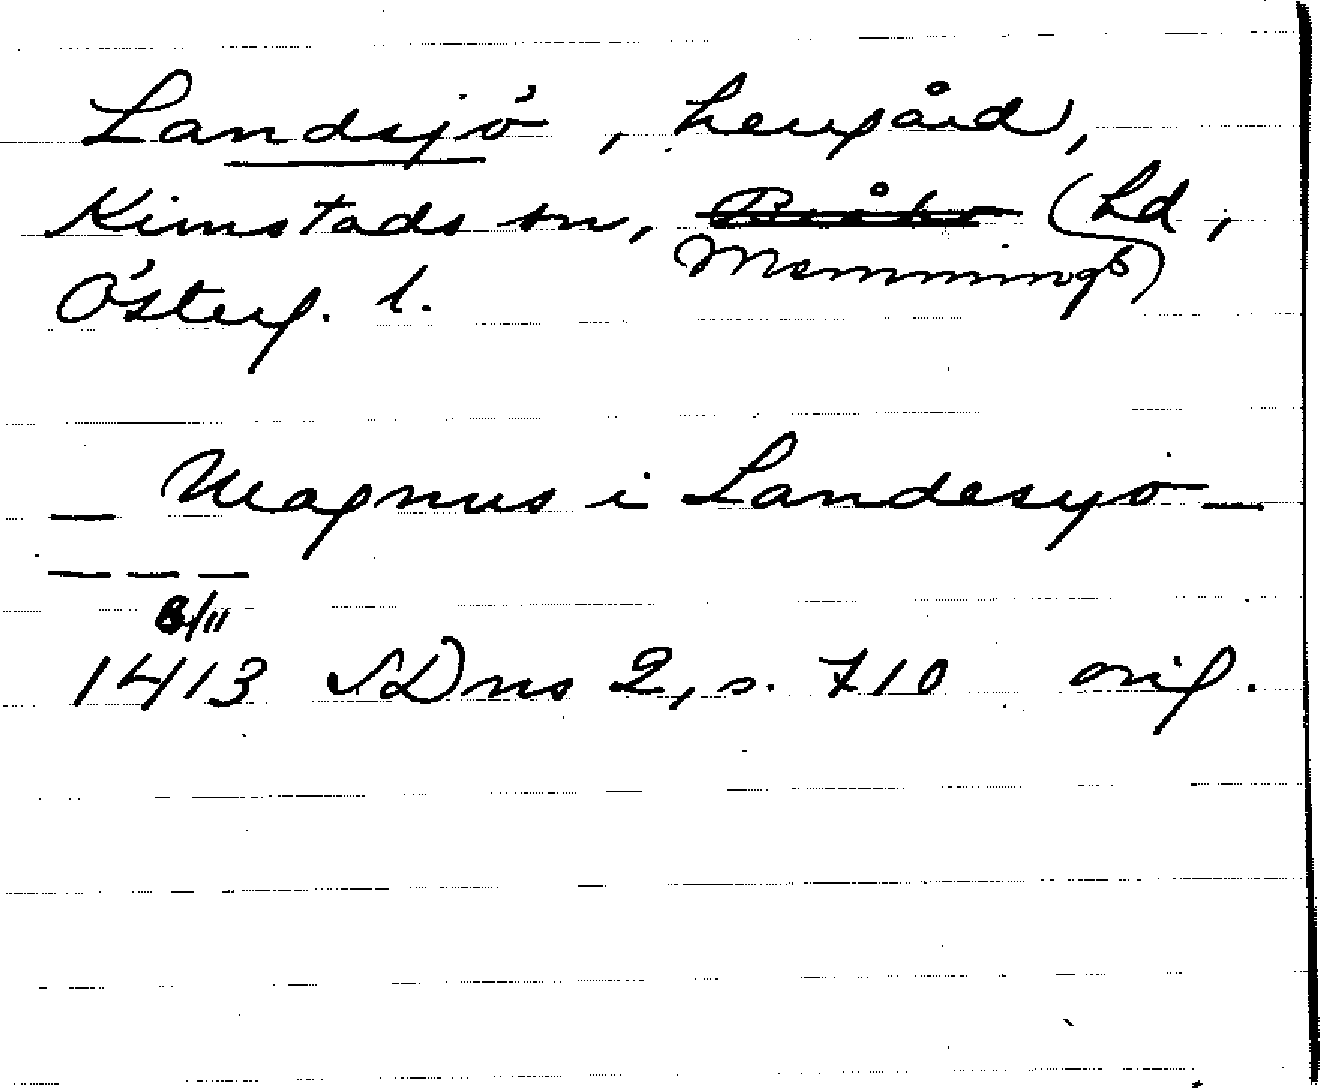 Landsjö, herrgård,
Kimstads sn, Bråbo hd,
(Memmings)
Österg. l.
— Magnus i Landesyo —
— — —
6/11
1413 SDns 2, s. 710 orig.